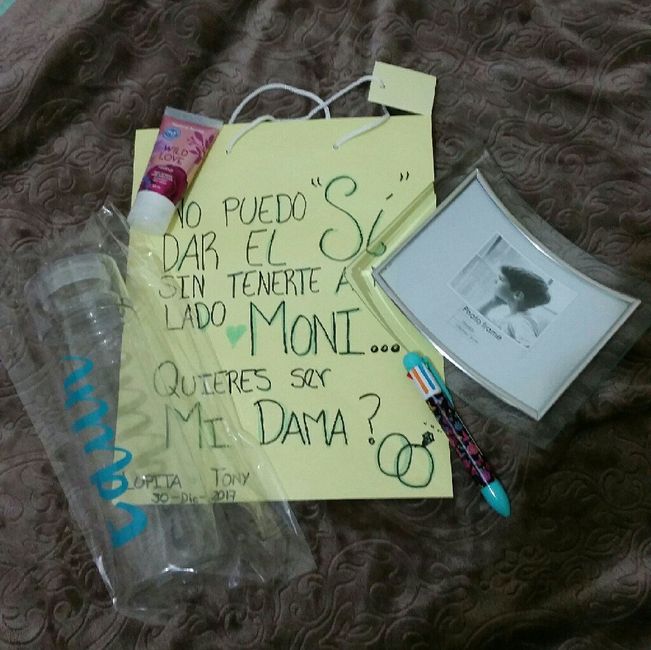 WILD
LOVE
NO PUEDO "Sí"
DAR EL
SIN TENERTE A
LADO MONI...
QUIERES ser
MI DAMA?
LUPITA TONY
30-Dic-2017
Photo frame